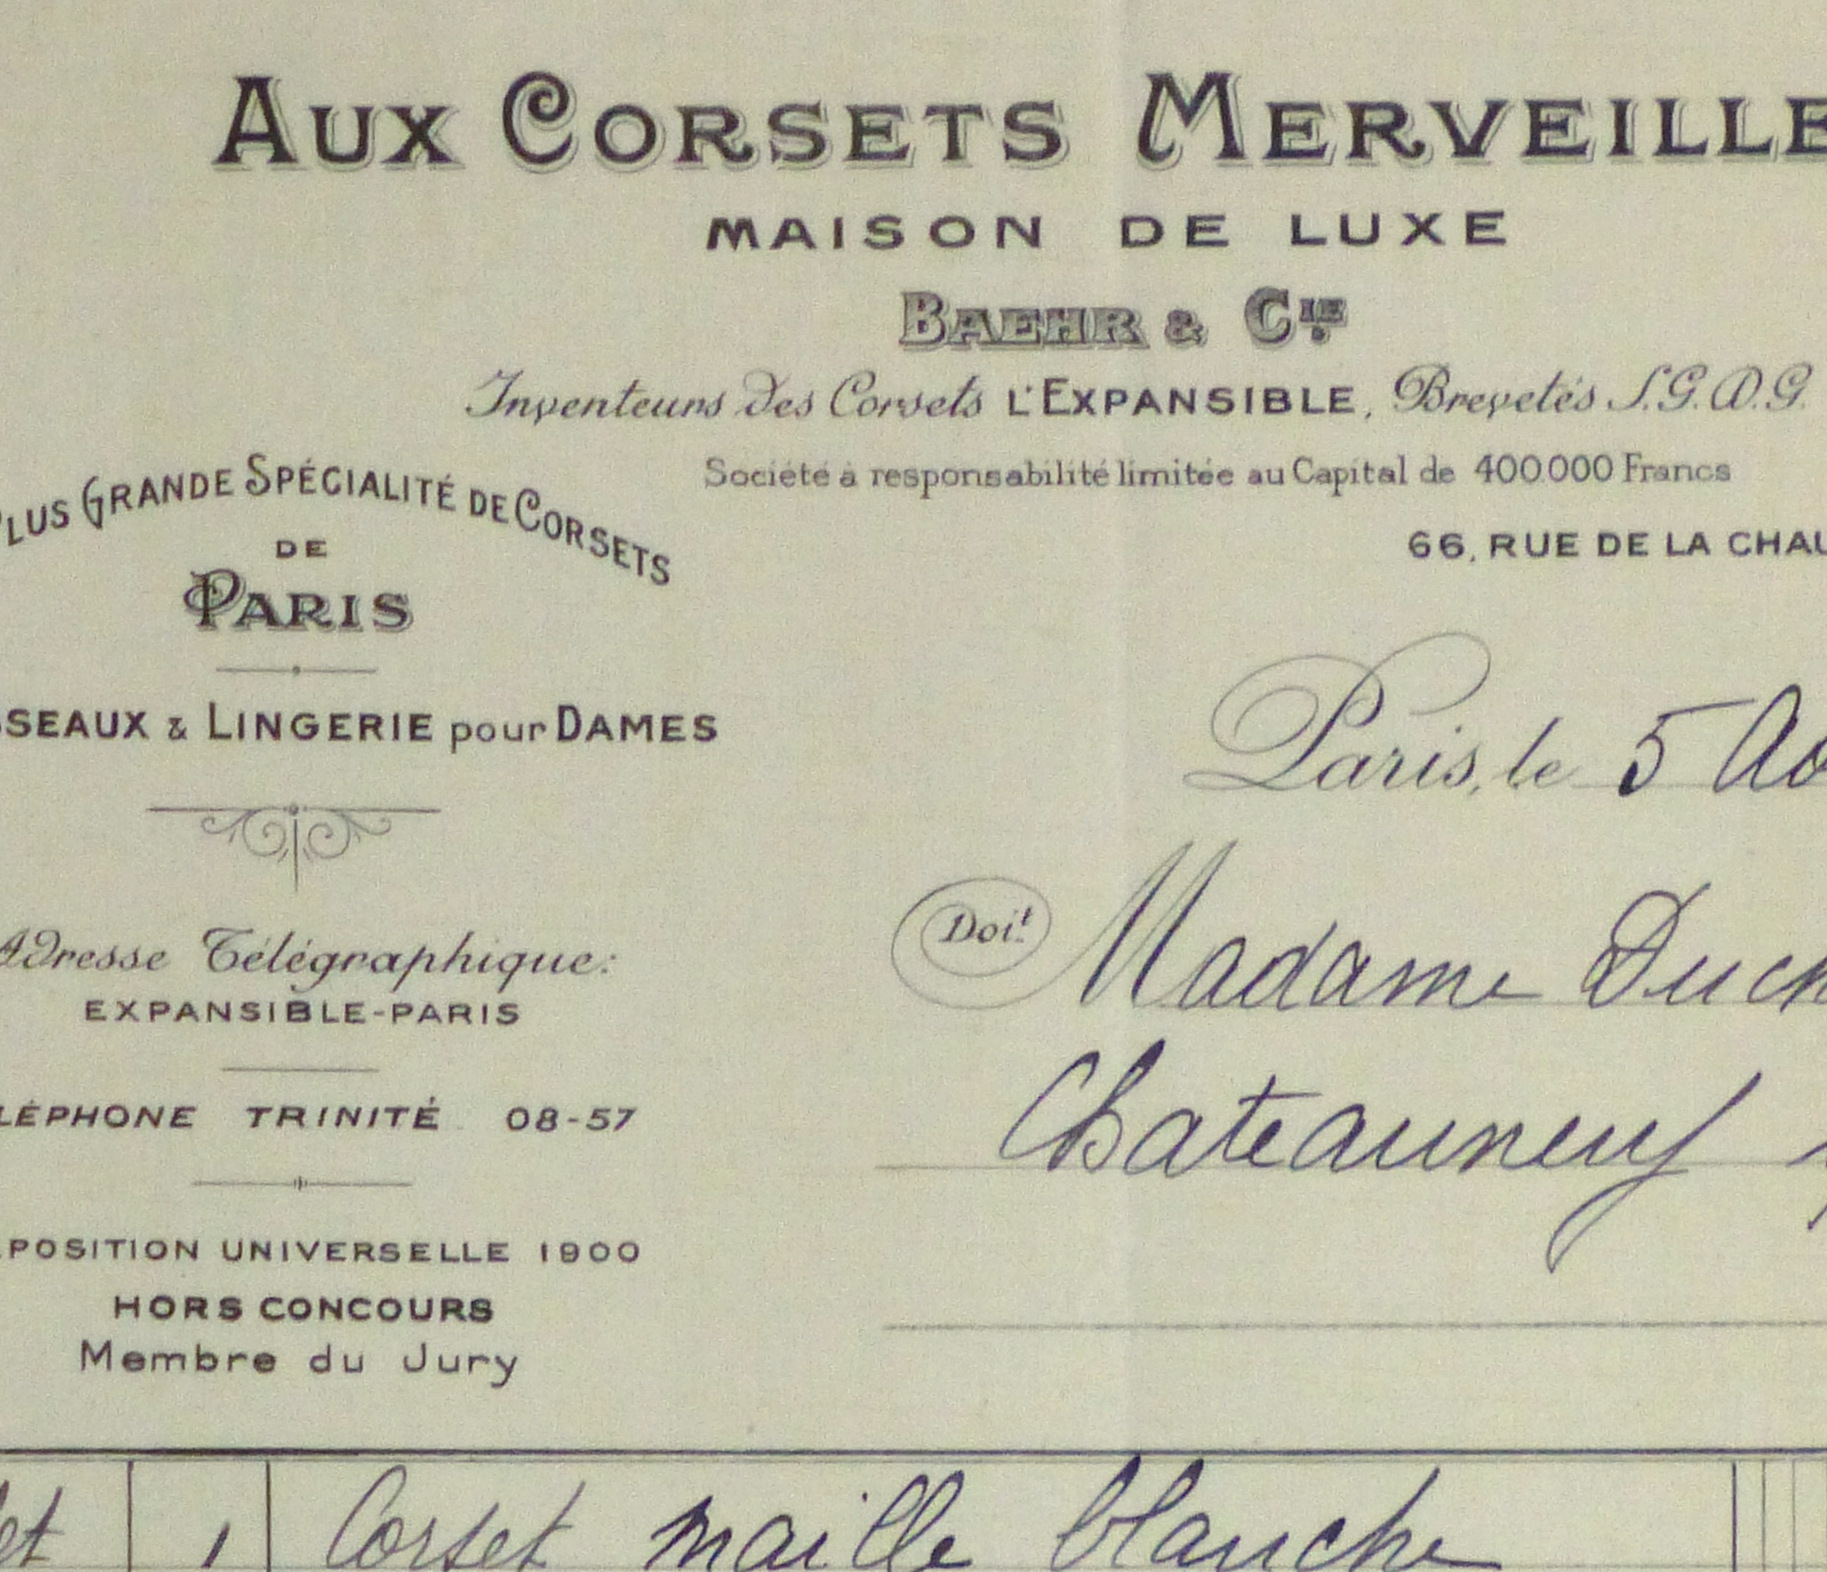 AUX CORSETS MERVEILLE
MAISON DE LUXE
BAEHR & CIE
Inventeurs des Corsets L'EXPANSIBLE, Brevetés S.G.D.G.
Société à responsabilité limitée au Capital de 400.000 Francs
66, RUE DE LA CHAU
PLUS GRANDE SPÉCIALITÉ DE CORSETS
DE
PARIS
SSEAUX & LINGERIE pour DAMES
Adresse Télégraphique:
EXPANSIBLE-PARIS
LÉPHONE TRINITÉ 08-57
POSITION UNIVERSELLE 1900
HORS CONCOURS
Membre du Jury
Paris, le 5 Ao
Doit Madame Duch
Chateauneuf
et 1 Corset maille blanche